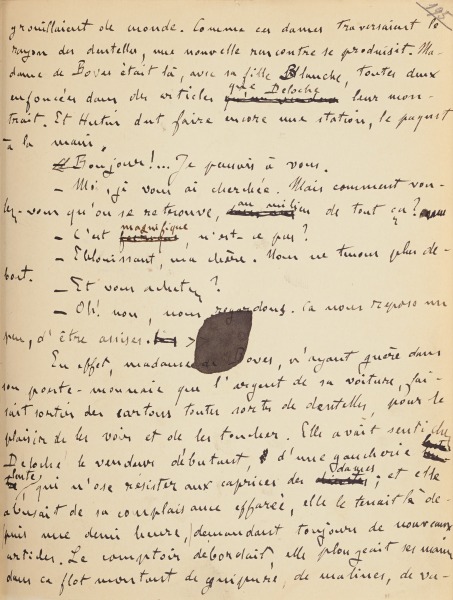 195
grouillaient de monde. Comme ces dames traversaient le
rayon des dentelles, une nouvelle rencontre se produisit. Ma-
dame de Boves était là, avec sa fille Blanche, toutes deux
enfoncées dans des articles que Deloche leur mon-
trait. Et Hutin dut faire encore une station, le paquet
à la main.
– Bonjour!... Je pensais à vous.
– Moi, je vous ai cherchée. Mais comment vou-
lez-vous qu'on se retrouve, au milieu de tout ça?
– C'est magnifique, n'est-ce pas?
– Eblouissant, ma chère. Nous ne tenons plus de-
bout.
– Et vous achetez?
– Oh! non, nous regardons. Ca nous repose un
peu, d'être assises.
En effet, madame de Boves, n'ayant guère dans
son porte-monnaie que l'argent de sa voiture, fai-
sait sortir des cartons toutes sortes de dentelles, pour le
plaisir de les voir et de les toucher. Elle avait senti chez
Deloche le vendeur débutant, d'une gaucherie
lente, qui n'ose resister aux caprices des dames; et elle
abusait de sa complaisance effarée, elle le tenait là de-
puis une demi heure, demandant toujours de nouveaux
articles. Le comptoir débordait, elle plongeait ses mains
dans ce flot montant de guipures, de malines, de va-